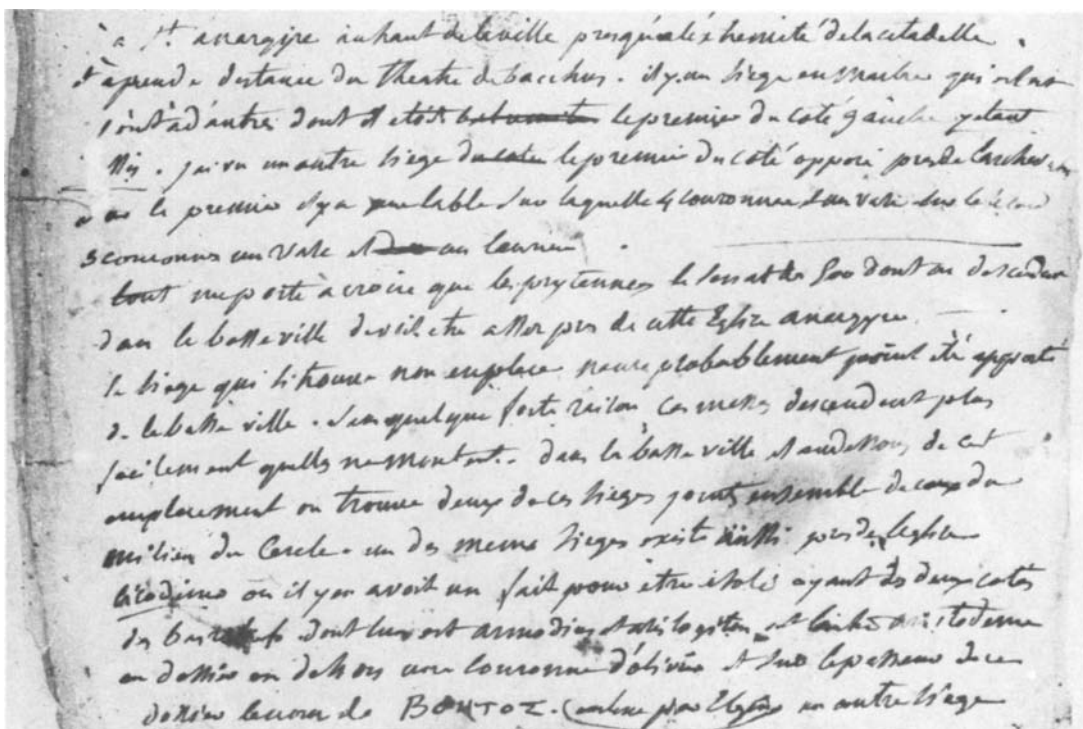 à St. anargire au haut de la ville presqu'à l'extremité de la citadelle.
et a grande distance du theatre de bacchus. il y a un siege en marbre qui
joint à d'autres dont il etoit le premier du coté gauche y etant
assis. j'ai vu un autre siege le premier du coté opposé pres de
le premier il y a une table sur laquelle 4 couronnes et un vase sur le second
3 couronnes un vase et un laurier.
tout me porte à croire que les prytannees le senat
dans la basse ville devoit etre asses pres de cette Eglise anargyre.
le siege qui se trouve non en place n'aura probablement point été apporté
de la basse ville. sans quelque forte raison ces masses descendent plus
facilement quelles ne montent. dans la basse ville et au dessous de cet
emplacement on trouve deux de ces sieges joints ensemble de ceux du
milieu du Cercle. un des meme sieges existe aussi pres de l'eglise
ou il y en avoit un fait pour etre isolé ayant des deux cotés
des bas reliefs dont l'un est armodius et aristogiton et l'autre
en dossier en dehors une couronne d'olivier et sur le de ce
dossier le nom de ΒΟΗΤΟΣ. un autre siege